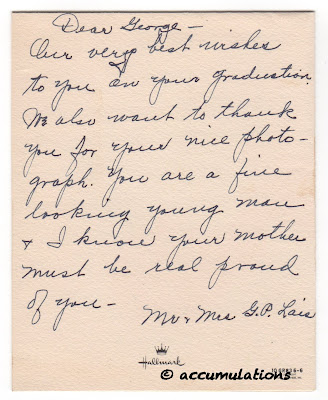 Dear George -
Our very best wishes
to you on your graduation.
We also want to thank
you for your nice photo-
graph. You are a fine
looking young man
& I know your mother
must be real proud
of you -
Mr & Mrs G.P. Lais
Hallmark
© accumulations